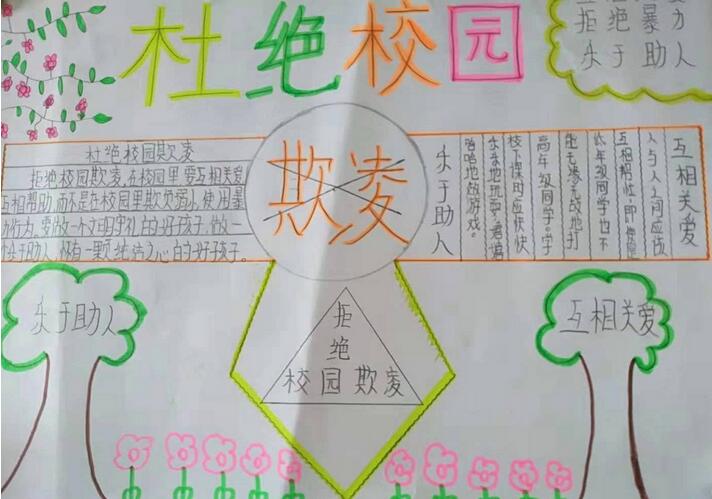 杜绝校园
拒绝暴力
乐于助人
欺凌
杜绝校园欺凌
拒绝校园欺凌,在校园里要互相关爱
互相帮助,而不是在校园里欺负弱小,使用暴
力作为,要做一个文明守礼的好孩子,做一
个乐于助人,怀有一颗纯洁之心的好孩子。
乐于助人
互相关爱
人与人之间应该
互相帮忙,即使是
低年级同学也不
能毛凑凑战地打
高年级同学。学
校下课时应快快
乐乐地玩耍,
地做游戏。
乐于助人
互相关爱
拒
绝
校园欺凌